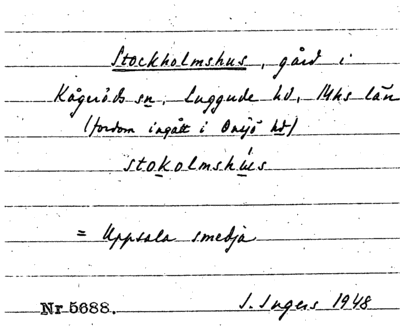 Stockholmshus, gård i
Kågeröds sn, Luggude hd, Mhs län
(fordom ingått i Onsjö hd)
stokolmshús
= Uppsala smedja
Nr 5688. I. Ingers 1948